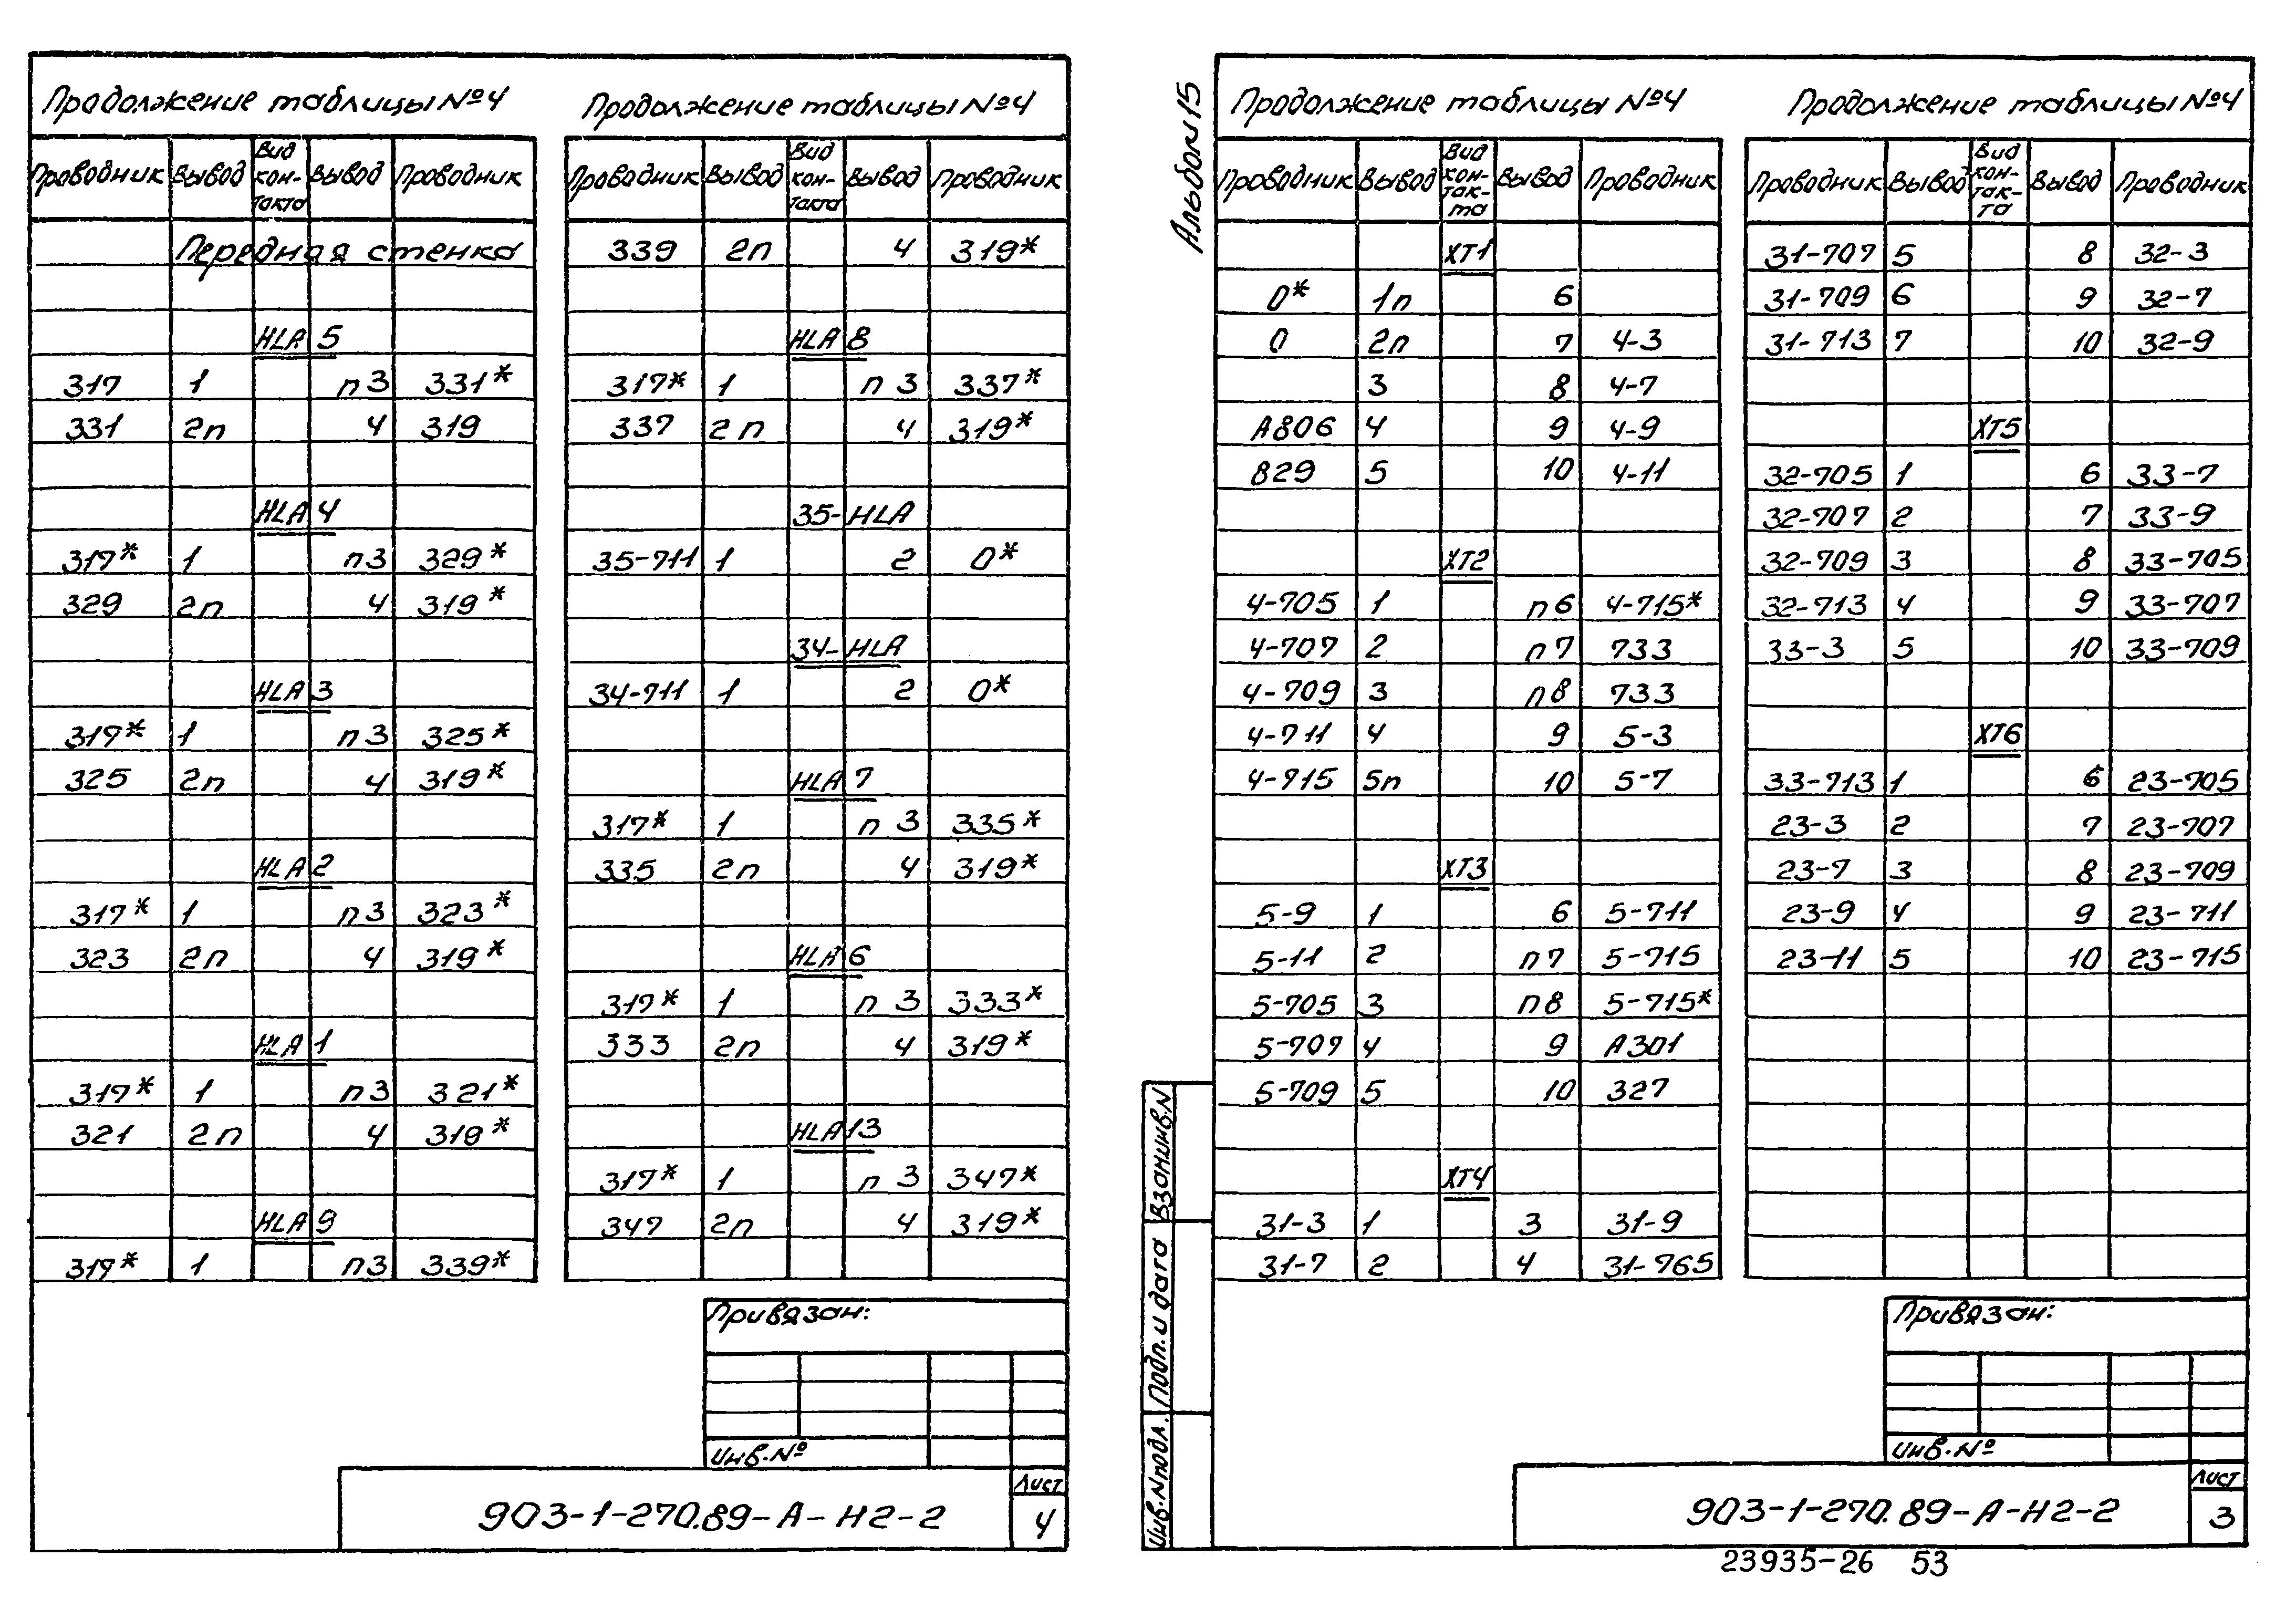 Продолжение таблицы №4
Проводник Вывод Вид кон-такта Вывод Проводник
Передняя стенка
HLA 5
317 1 п3 331*
331 2п 4 319
HLA 4
317* 1 п3 329*
329 2п 4 319*
HLA 3
317* 1 п3 325*
325 2п 4 319*
HLA 2
317* 1 п3 323*
323 2п 4 319*
HLA 1
317* 1 п3 321*
321 2п 4 319*
HLA 9
317* 1 п3 339*
Продолжение таблицы №4
Проводник Вывод Вид кон-такта Вывод Проводник
339 2п 4 319*
HLA 8
317* 1 п 3 337*
337 2п 4 319*
35-HLA
35-711 1 2 0*
34-HLA
34-711 1 2 0*
HLA 7
317* 1 п 3 335*
335 2п 4 319*
HLA 6
317* 1 п 3 333*
333 2п 4 319*
HLA 13
317* 1 п 3 347*
347 2п 4 319*
Привязан:
Инв.№
903-1-270.89-А-Н2-2
Лист
4
Альбом 15
Продолжение таблицы №4
Проводник Вывод Вид кон-так-та Вывод Проводник
ХТ1
0* 1п 6
0 2п 7 4-3
3 8 4-7
А806 4 9 4-9
829 5 10 4-11
ХТ2
4-705 1 п6 4-715*
4-707 2 п7 733
4-709 3 п8 733
4-711 4 9 5-3
4-715 5п 10 5-7
ХТ3
5-9 1 6 5-711
5-11 2 п7 5-715
5-705 3 п8 5-715*
5-707 4 9 А301
5-709 5 10 327
ХТ4
31-3 1 3 31-9
31-7 2 4 31-765
Продолжение таблицы №4
Проводник Вывод Вид кон-так-та Вывод Проводник
31-707 5 8 32-3
31-709 6 9 32-7
31-713 7 10 32-9
ХТ5
32-705 1 6 33-7
32-707 2 7 33-9
32-709 3 8 33-705
32-713 4 9 33-707
33-3 5 10 33-709
ХТ6
33-713 1 6 23-705
23-3 2 7 23-707
23-7 3 8 23-709
23-9 4 9 23-711
23-11 5 10 23-715
Привязан:
Инв.№
903-1-270.89-А-Н2-2
Лист
3
Взам.инв.N
Подп. и дата
Инв.N подл.
23935-26 53